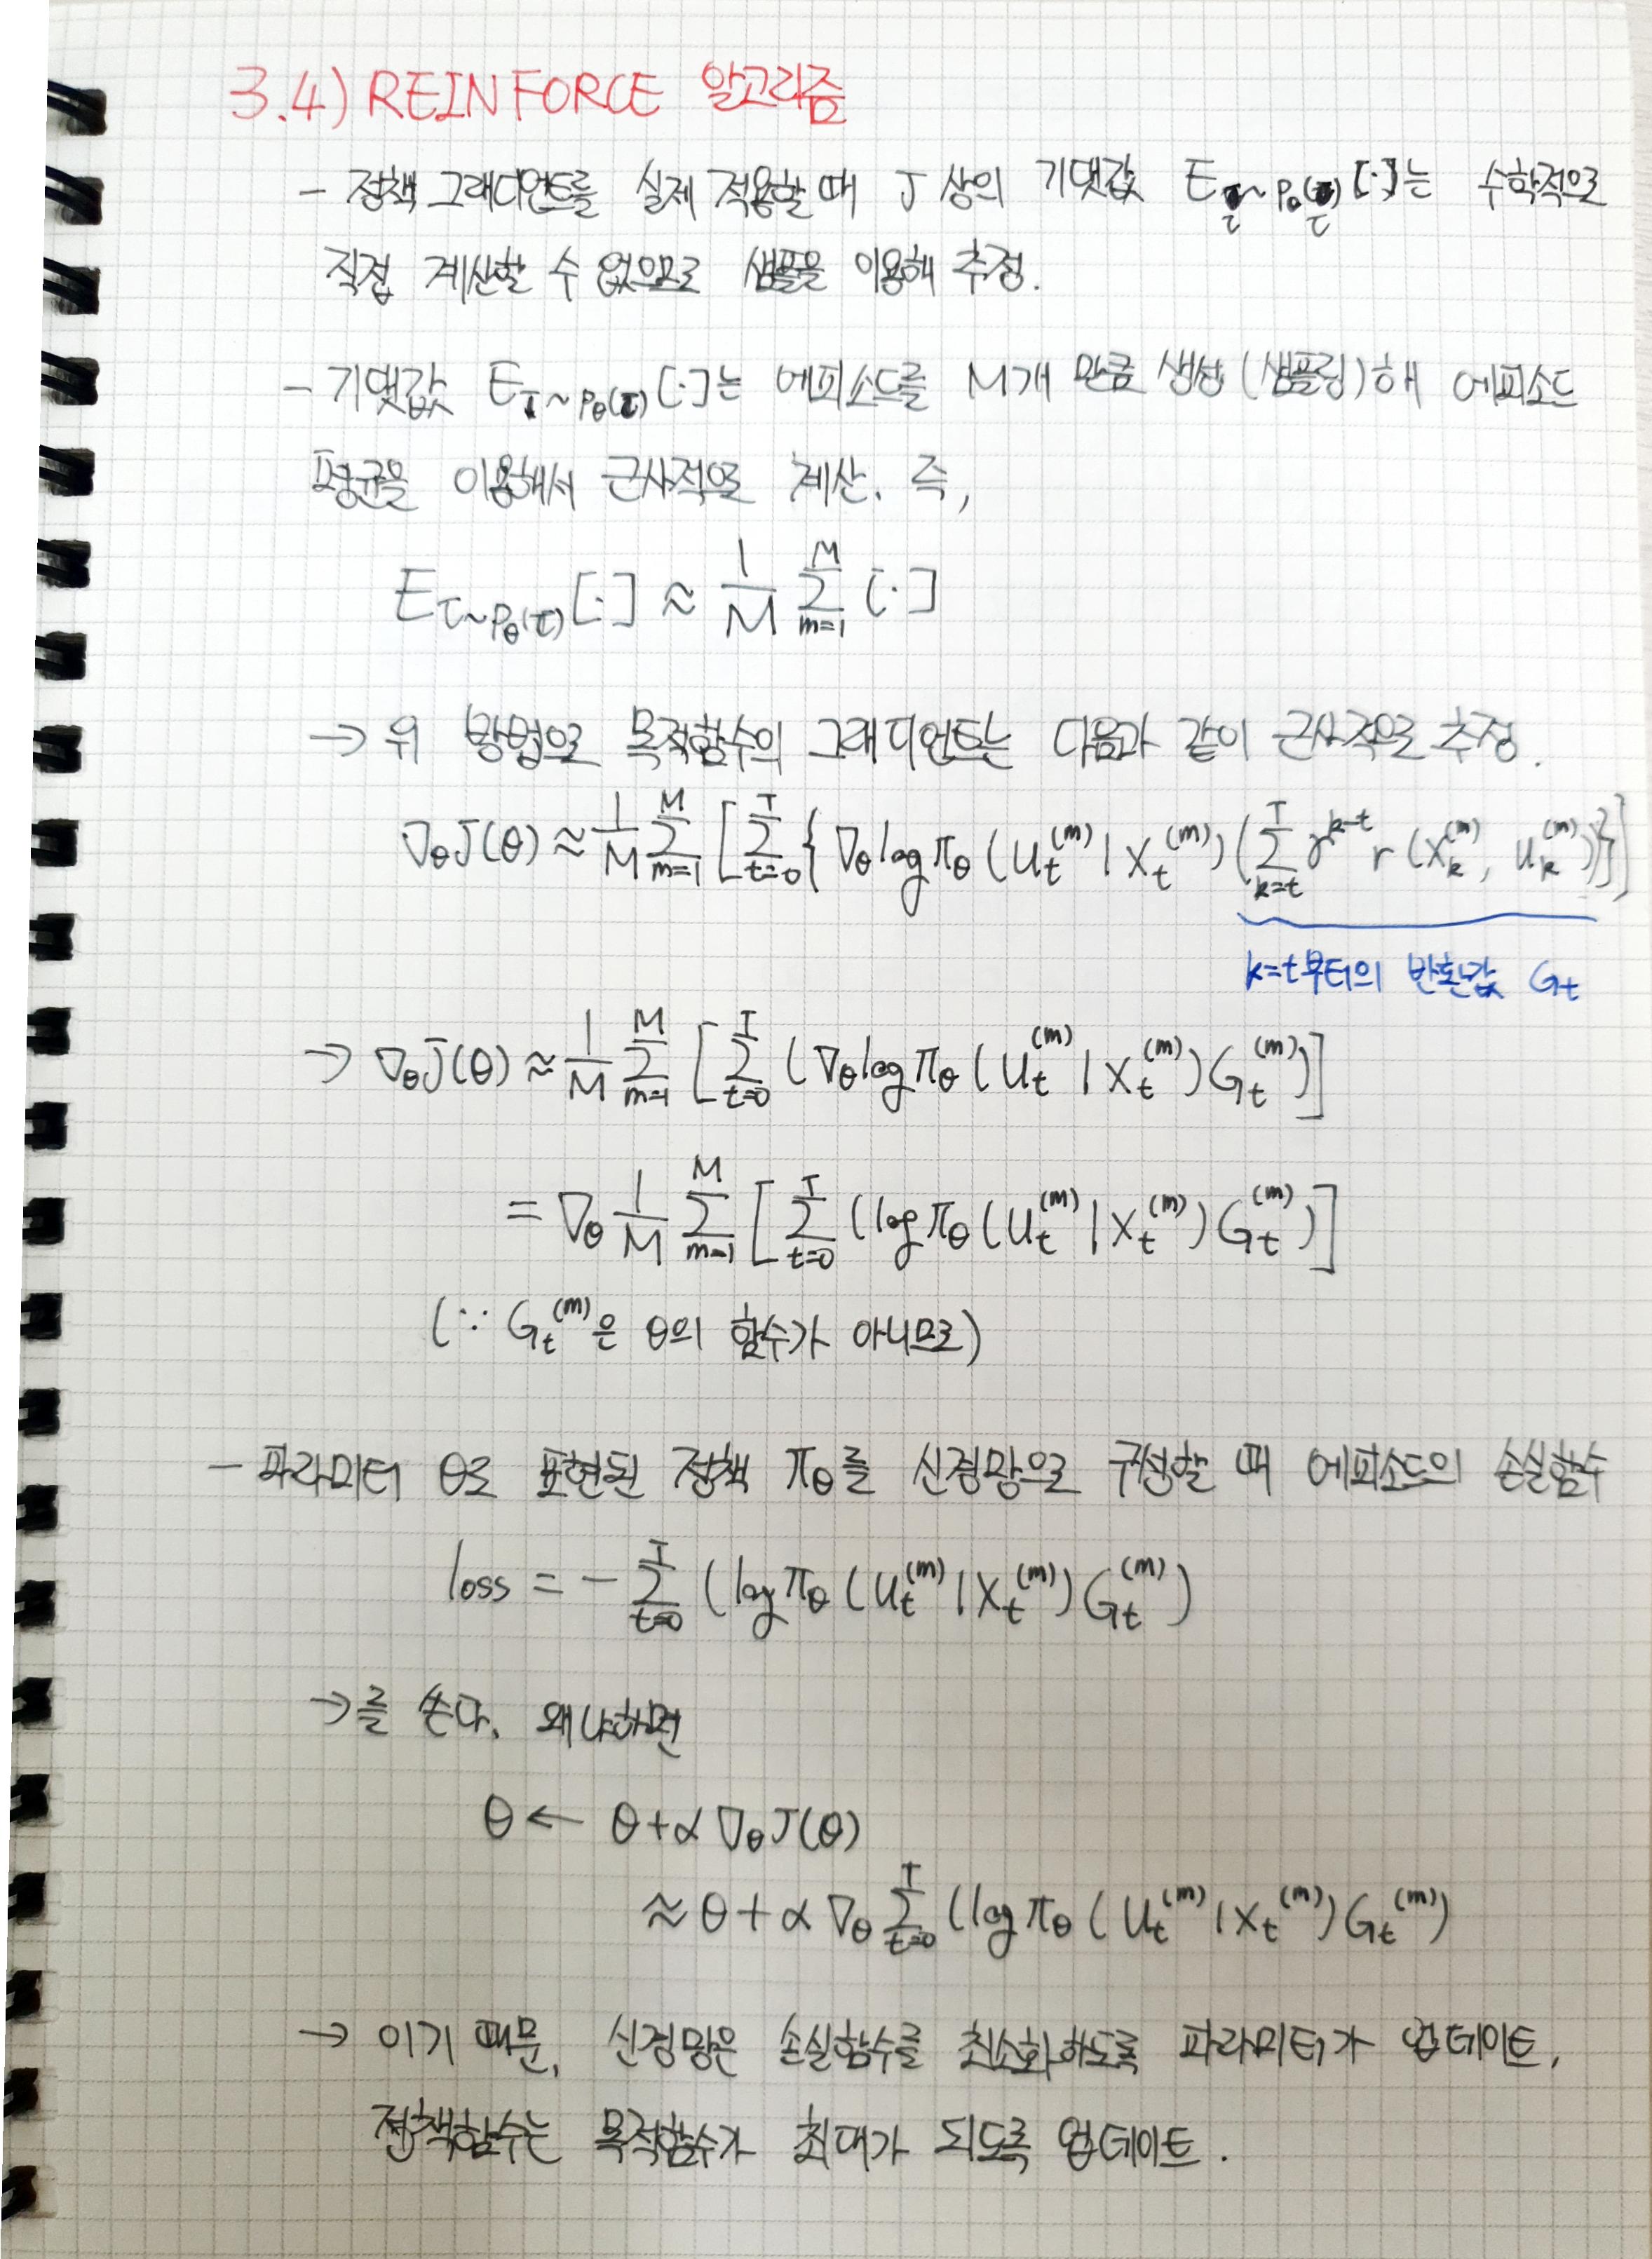 3.4) REINFORCE 알고리즘
- 정책 그래디언트를 실제 적용할 때 J 상의 기댓값 E_{τ~p_θ(τ)}[·]는 수학적으로
직접 계산할 수 없으므로 샘플을 이용해 추정.
- 기댓값 E_{τ~p_θ(τ)}[·]는 에피소드를 M개 만큼 생성(샘플링)해 에피소드
평균을 이용해서 근사적으로 계산. 즉,
E_{τ~p_θ(τ)}[·] ≈ \frac{1}{M} \sum_{m=1}^{M} [·]
→ 위 방법으로 목적함수의 그래디언트는 다음과 같이 근사적으로 추정.
∇_θ J(θ) ≈ \frac{1}{M} \sum_{m=1}^{M} [ \sum_{t=0}^{T} { ∇_θ log π_θ (u_t^{(m)} | x_t^{(m)}) ( \sum_{k=t}^{T} γ^{k-t} r (x_k^{(m)}, u_k^{(m)}) ) } ]
k=t부터의 반환값 G_t
→ ∇_θ J(θ) ≈ \frac{1}{M} \sum_{m=1}^{M} [ \sum_{t=0}^{T} ( ∇_θ log π_θ (u_t^{(m)} | x_t^{(m)}) G_t^{(m)} ) ]
= ∇_θ \frac{1}{M} \sum_{m=1}^{M} [ \sum_{t=0}^{T} ( log π_θ (u_t^{(m)} | x_t^{(m)}) G_t^{(m)} ) ]
(∵ G_t^{(m)}은 θ의 함수가 아니므로)
- 파라미터 θ로 표현된 정책 π_θ를 신경망으로 구성할 때 에피소드의 손실함수
loss = - \sum_{t=0}^{T} ( log π_θ (u_t^{(m)} | x_t^{(m)}) G_t^{(m)} )
→ 를 쓴다. 왜냐하면
θ ← θ + α ∇_θ J(θ)
≈ θ + α ∇_θ \sum_{t=0}^{T} ( log π_θ (u_t^{(m)} | x_t^{(m)}) G_t^{(m)} )
→ 이기 때문, 신경망은 손실함수를 최소화하도록 파라미터가 업데이트,
정책함수는 목적함수가 최대가 되도록 업데이트.